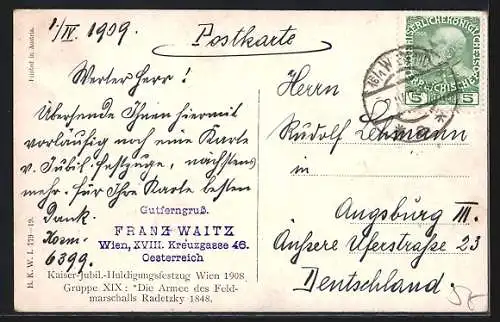 1/IV. 1909.
Postkarte
Werter Herr!
Übersende Ihnen hiermit
vorläufig noch eine Karte
v. Jubil. festzuge, nächstens
mehr. Für Ihre Karte besten
Dank.
6399.
Gutferngruß.
FRANZ WAITZ
Wien, XVIII. Kreuzgasse 46.
Oesterreich
Kaiser-Jubil.-Huldigungsfestzug Wien 1908
Gruppe XIX: "Die Armee des Feld-
marschalls Radetzky 1848.
Printed in Austria.
B. K. W. I. 779-19.
Herrn
Rudolf Lehmann
in
Augsburg III.
Äußere Uferstraße 23
Deutschland.
5 5